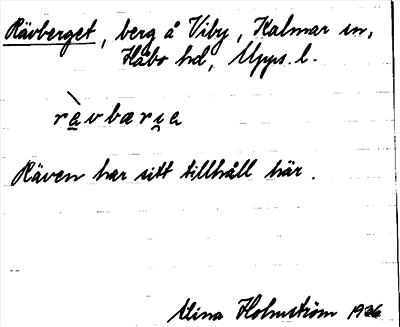 Rävberget, berg å Viby, Kalmar sn,
Håbo hd, Upps. l.
rὲvbærɪ̯a
Räven har sitt tillhåll här.
Stina Holmström 1936